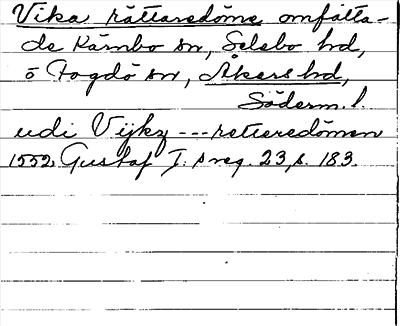 Vika rättaredöme omfatta-
de Kärnbo sn, Selebo hd,
o Fogdö sn, Åkers hd,
Söderm. l.
udi Vijky --- retteredömen
1552, Gustaf I:s reg. 23, s. 183.